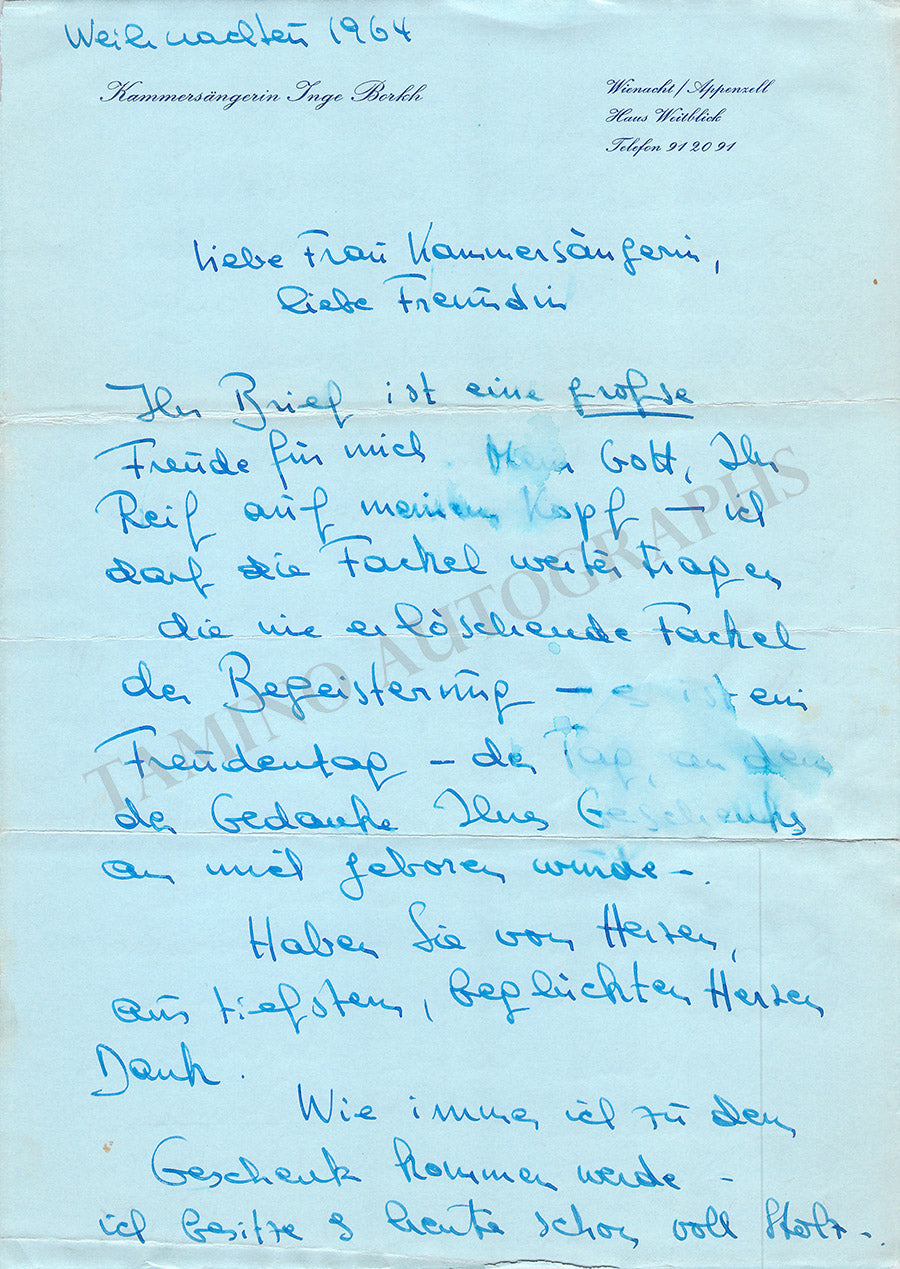 Weihnachten 1964
Kammersängerin Inge Borkh
Wienacht / Appenzell
Haus Weitblick
Telefon 91 20 91
liebe Frau Kammersängerin,
liebe Freundin
Ihr Brief ist eine große
Freude für mich. Mein Gott, Ihr
Reif auf meinem Kopf – ich
darf die Fackel weiter tragen
die nie erlöschende Fackel
der Begeisterung – es ist ein
Freudentag – der Tag, an dem
der Gedanke Ihres Geschenks
an mich geboren wurde –.
Haben Sie von Herzen,
aus tiefstem, beglückten Herzen
Dank.
Wie immer ich zu dem
Geschenk kommen werde –
ich besitze es heute schon voll Stolz –.
TAMINO AUTOGRAPHS